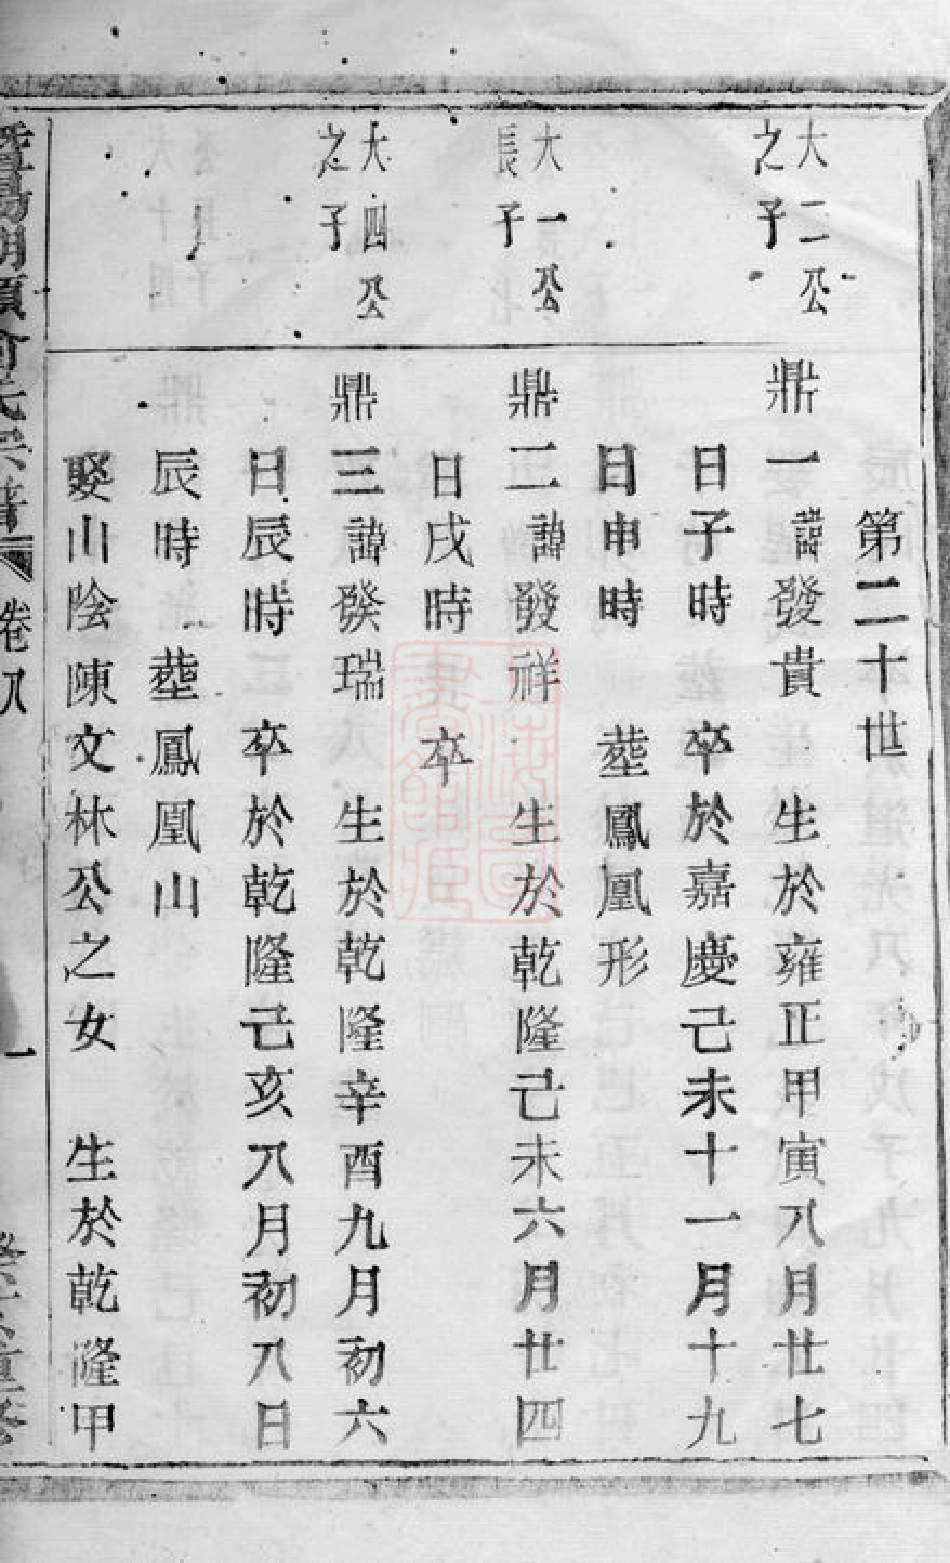 第二十世
大二公
之子
鼎一諱發貴 生於雍正甲寅八月廿七
日子時 卒於嘉慶己未十一月十九
日申時 塟鳳凰形
大一公
長子
鼎二諱發祥 生於乾隆己未六月廿四
日戌時 卒
大四公
之子
鼎三諱發瑞 生於乾隆辛酉九月初六
日辰時 卒於乾隆己亥八月初八日
辰時 塟鳳凰山
娶山陰陳文林公之女 生於乾隆甲
暨陽湖頭俞氏宗譜 卷八 一